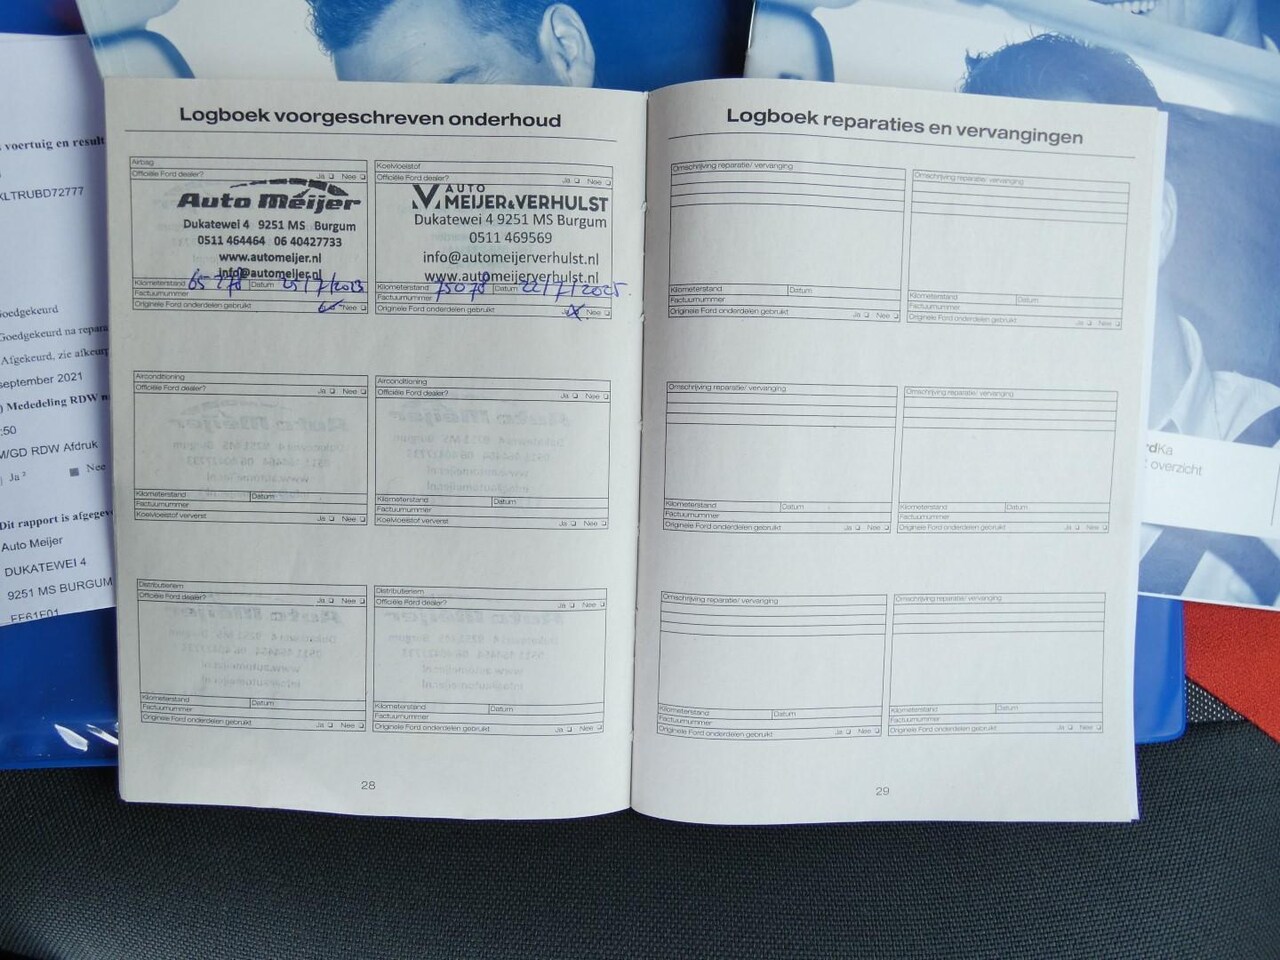 s voertuig en result
KLTRUBD72777
Goedgekeurd
Goedgekeurd na repara
Afgekeurd, zie afkeur
september 2021
) Mededeling RDW n
:50
M/GD RDW Afdruk
Ja ² Nee
Dit rapport is afgegev
Auto Meijer
DUKATEWEI 4
9251 MS BURGUM
FF61F01
Logboek voorgeschreven onderhoud
Airbag
Officiële Ford dealer? Ja Nee
Auto Meijer
Dukatewei 4 9251 MS Burgum
0511 464464 06 40427733
www.automeijer.nl
info@automeijer.nl
Kilometerstand 65 278 Datum 25/7/2023
Factuurnummer
Originele Ford onderdelen gebruikt Nee
Koelvloeistof
Officiële Ford dealer? Ja Nee
AUTO
MEIJER&VERHULST
Dukatewei 4 9251 MS Burgum
0511 469569
info@automeijerverhulst.nl
www.automeijerverhulst.nl
Kilometerstand 75078 Datum 22/7/2025.
Factuurnummer
Originele Ford onderdelen gebruikt Ja Nee
Airconditioning
Officiële Ford dealer? Ja Nee
Kilometerstand Datum
Factuurnummer
Koelvloeistof ververst Ja Nee
Airconditioning
Officiële Ford dealer? Ja Nee
Kilometerstand Datum
Factuurnummer
Koelvloeistof ververst Ja Nee
Distributieriem
Officiële Ford dealer? Ja Nee
Kilometerstand Datum
Factuurnummer
Originele Ford onderdelen gebruikt Ja Nee
Distributieriem
Officiële Ford dealer? Ja Nee
Kilometerstand Datum
Factuurnummer
Originele Ford onderdelen gebruikt Ja Nee
28
Logboek reparaties en vervangingen
Omschrijving reparatie/ vervanging
Kilometerstand Datum
Factuurnummer
Originele Ford onderdelen gebruikt Ja Nee
Omschrijving reparatie/ vervanging
Kilometerstand Datum
Factuurnummer
Originele Ford onderdelen gebruikt Ja Nee
Omschrijving reparatie/ vervanging
Kilometerstand Datum
Factuurnummer
Originele Ford onderdelen gebruikt Ja Nee
Omschrijving reparatie/ vervanging
Kilometerstand Datum
Factuurnummer
Originele Ford onderdelen gebruikt Ja Nee
Omschrijving reparatie/ vervanging
Kilometerstand Datum
Factuurnummer
Originele Ford onderdelen gebruikt Ja Nee
Omschrijving reparatie/ vervanging
Kilometerstand Datum
Factuurnummer
Originele Ford onderdelen gebruikt Ja Nee
29
rdKa
overzicht